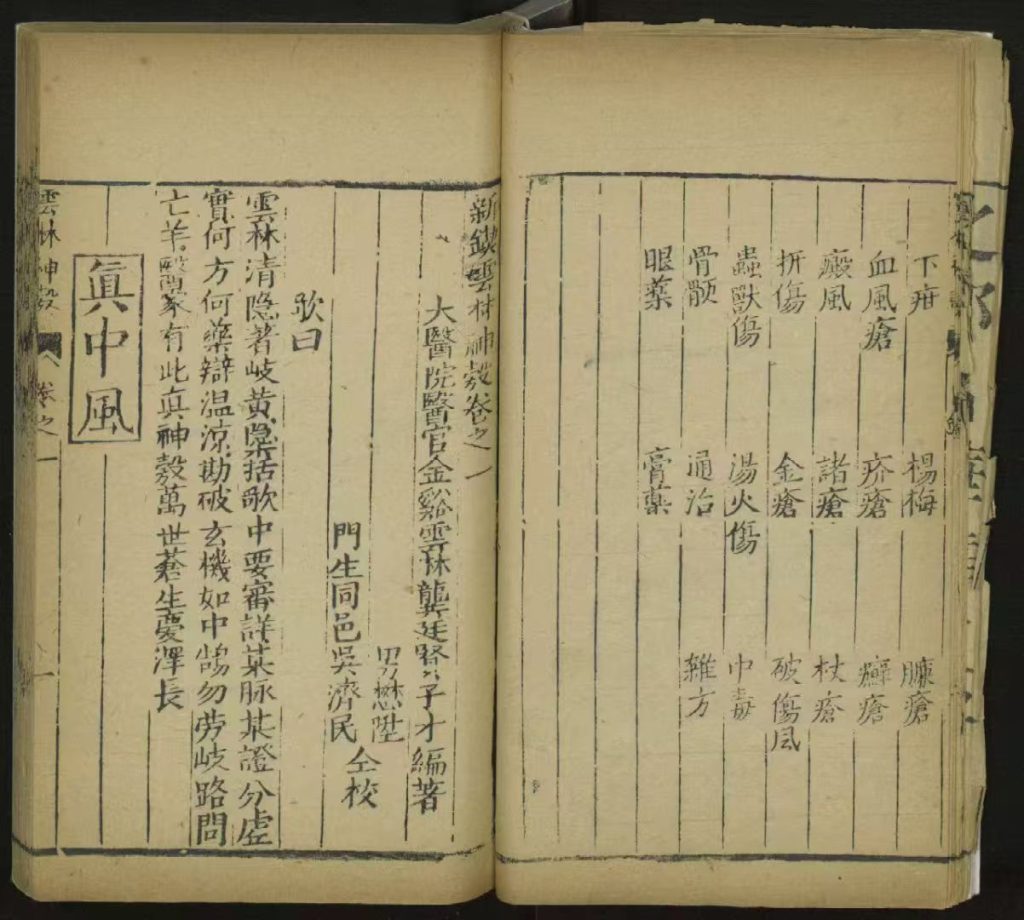 下疳 楊梅 臁瘡
血風瘡 疥瘡 癬瘡
癜風 諸瘡 杖瘡
折傷 金瘡 破傷風
蟲獸傷 湯火傷 中毒
骨骾 通治 雜方
眼藥 膏藥
新鍥雲林神彀卷之一
大醫院醫官金谿雲林龔廷賢子才編著
男懋陞
仝校
門生同邑吳濟民
歌曰
雲林清隐著岐黄檃括歌中要審詳某脉某證分虛
實何方何藥辯温凉勘破玄機如中鵠勿劳岐路問
亡羊醫家有此真神彀萬世蒼生憂澤長
眞中風
雲林神彀 卷之一 一